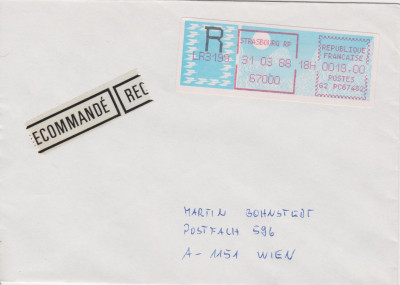 R
LR3199
STRASBOURG RP
31 03 88 18H
67000
REPUBLIQUE
FRANCAISE
0018,00
POSTES
02 PC67402
ECOMMANDÉ REC
MARTIN BOHNSTEDT
POSTFACH 596
A-1151 WIEN